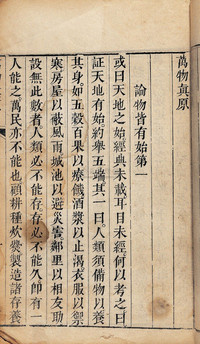 萬物真原
論物皆有始第一
或曰天地之始經典未載耳目未經何以考之曰
証天地有始約舉五端其一曰人類須備物以養
其身如五穀百果以療饑酒漿以止渴衣服以禦
寒房屋以蔽風雨城池以避災害鄰里以相友助
設無此數者人類必不能存存必不能久卽有一
人能之萬民亦不能也顧耕種炊爨製造諸存養